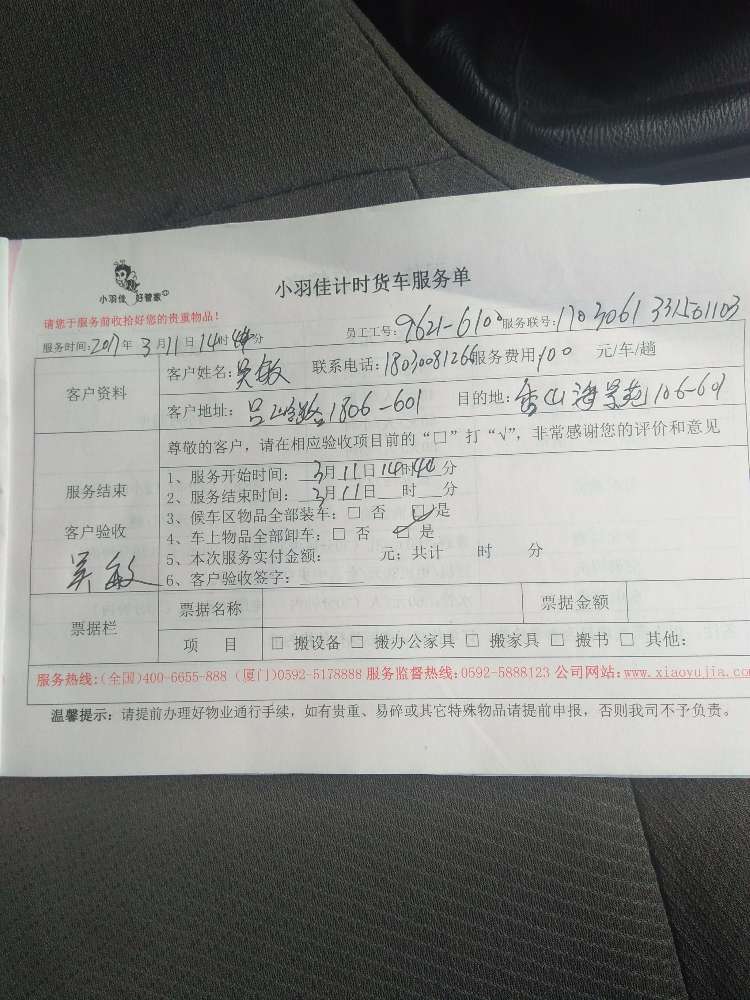 小羽佳 好管家
小羽佳计时货车服务单
请您于服务前收拾好您的贵重物品！
员工工号：9621-6100 服务联号：1703061331561103
服务时间：2017年 3月11日14时44分
客户资料
客户姓名：吴敏 联系电话：18030081266 服务费用100 元/车/趟
客户地址： 1806-601 目的地：香山海景苑106-601
尊敬的客户，请在相应验收项目前的“口”打“√”，非常感谢您的评价和意见
服务结束
客户验收
吴敏
1、服务开始时间： 3月11日14时44分
2、服务结束时间： 3月11日 时 分
3、候车区物品全部装车：□ 否 ☑是
4、车上物品全部卸车：□ 否 ☑ 是
5、本次服务实付金额： 元；共计 时 分
6、客户验收签字：
票据栏
票据名称 票据金额
项 目 □ 搬设备 □ 搬办公家具 □ 搬家具 □ 搬书 □ 其他：
服务热线：(全国)400-6655-888 (厦门)0592-5178888 服务监督热线：0592-5888123 公司网站：www.xiaoyujia.com
温馨提示：请提前办理好物业通行手续，如有贵重、易碎或其它特殊物品请提前申报，否则我司不予负责。